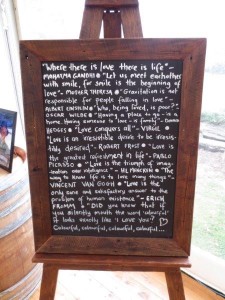 "Where there is love there is life" -
MAHATMA GANDHI • "Let us meet eachother
with smile, for smile is the beginning of
love" - MOTHER THERESA • "Gravitation is not
responsible for people falling in love" -
ALBERT EINSTEIN • "Who, being loved, is poor?" -
OSCAR WILDE • "Having a place to go - is a
home. Having someone to love - is family" - DONNA
HEDGES • "Love conquers all" - VIRGIL •
"Love is an irresistible desire to be irresis-
tibly desired" - ROBERT FROST • "Love is
the greatest refreshment in life" - PABLO
PICASSO • "Love is the triumph of imag-
ination over intelligence" - HL MENCKEN • "The
way to know life is to love many things" -
VINCENT VAN GOGH • "Love is the
only sane and satisfactory answer to the
problem of human existence" - ERICH
FROMM • "DID you know that if
you silently mouth the word 'colourful'
it looks exactly like 'I LOVE YOU'?
Colourful, colourful, colourful, colourful...